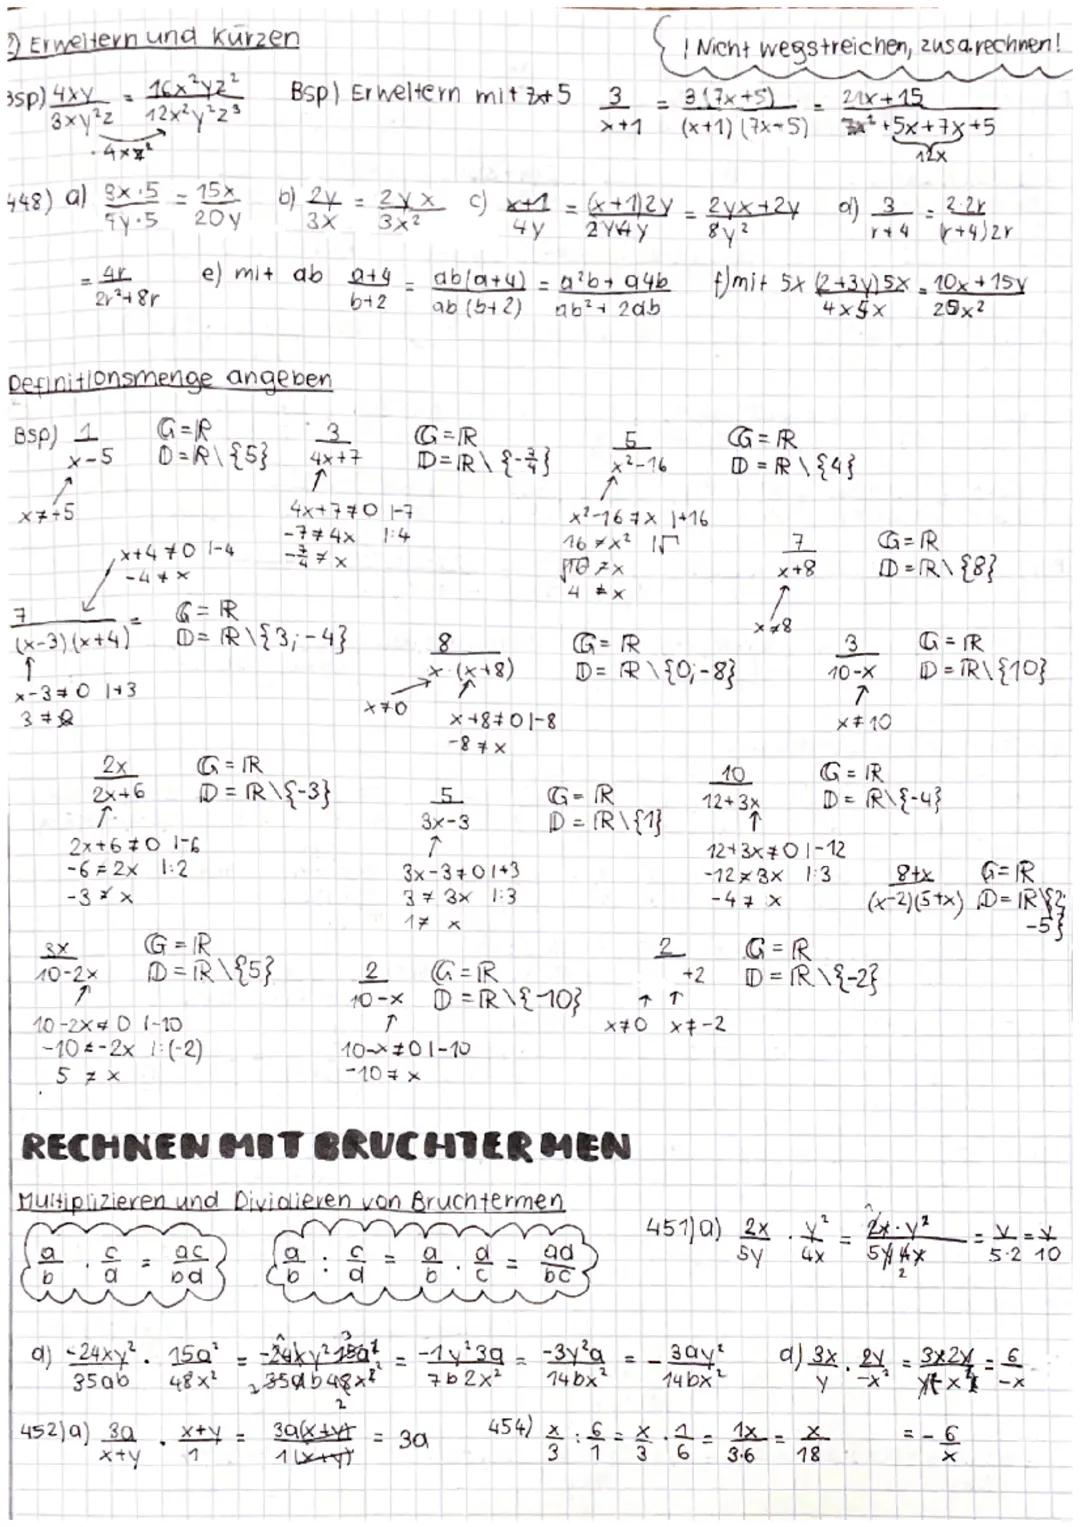 2) Erweitern und Kürzen
! Nicht wegstreichen, zusa.rechnen!
Bsp) 4xy/3xy²z = 16x²yz²/12x²y²z³
·4xz²
Bsp) Erweitern mit 7x+5 3/(x+1) = 3(7x+5)/(x+1)(7x+5) = 21x+15/7x²+5x+7x+5
12x
448) a) 3x·5/4y·5 = 15x/20y b) 2y/3x = 2yx/3x² c) x+1/4y = (x+1)2y/2y4y = 2yx+2y/8y² d) 3/r+4 = 2·2r/(r+4)2r
= 4r/2r²+8r e) mit ab a+4/b+2 = ab(a+4)/ab(b+2) = a²b+a4b/ab²+2ab f) mit 5x (2+3y)5x/4x5x = 10x+15y/20x²
Definitionsmenge angeben
Bsp) 1/x-5 G=ℝ D=ℝ\{5} 3/4x+7 G=ℝ D=ℝ\{-7/4} 5/x²-16 G=ℝ D=ℝ\{4}
x≠+5
4x+7≠0 |-7
-7≠4x |:4
-7/4≠x
x²-16≠x |+16
16≠x² |√
√16≠x
4≠x
7/x+8 G=ℝ D=ℝ\{8}
x≠8
x+4≠0 |-4
-4≠x
7/(x-3)(x+4) = G=ℝ D=ℝ\{3;-4}
x-3≠0 |+3
3≠
8/x·(x+8) G=ℝ D=ℝ\{0;-8}
x≠0
x+8≠0 |-8
-8≠x
3/10-x G=ℝ D=ℝ\{10}
x≠10
2x/2x+6 G=ℝ D=ℝ\{-3}
2x+6≠0 |-6
-6=2x |:2
-3≠x
5/3x-3 G=ℝ D=ℝ\{1}
3x-3≠0 |+3
3≠3x |:3
1≠x
10/12+3x G=ℝ D=ℝ\{-4}
12+3x≠0 |-12
-12≠3x |:3
-4≠x
8+x/(x-2)(5+x) G=ℝ D=ℝ\{2;-5}
3x/10-2x G=ℝ D=ℝ\{5}
10-2x≠0 |-10
-10≠-2x |:(-2)
5≠x
2/10-x G=ℝ D=ℝ\{-10}
10-x≠0 |-10
-10≠x
2/+2 G=ℝ D=ℝ\{-2}
x≠0 x≠-2
RECHNEN MIT BRUCHTERMEN
Multiplizieren und Dividieren von Bruchtermen
a/b · c/d = ac/bd a/b : c/d = a/b · d/c = ad/bc
451) a) 2x/5y · y²/4x = 2x·y²/5y4x = y/5·2 = y/10
d) -24xy²/35ab · 15a²/48x² = -24xy²15a²/35ab48x² = -1y²3a/7b2x² = -3y²a/14bx² = -3ay²/14bx²
d) 3x/y · 2y/-x² = 3x2y/yx² = 6/-x
= -6/x
452) a) 3a/x+y · x+y/1 = 3a(x+y)/1(x+y) = 3a
454) x/3 : 6/1 = x/3 · 1/6 = 1x/3·6 = x/18